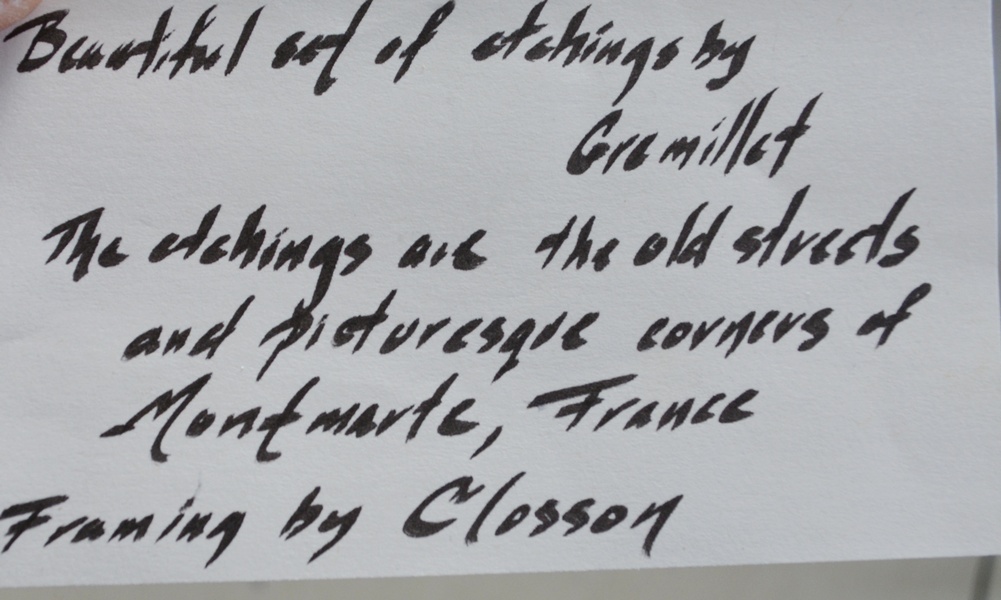 Beautiful set of etchings by
Gremillet
The etchings are the old streets
and picturesque corners of
Montmarte, France
Framing by Closson